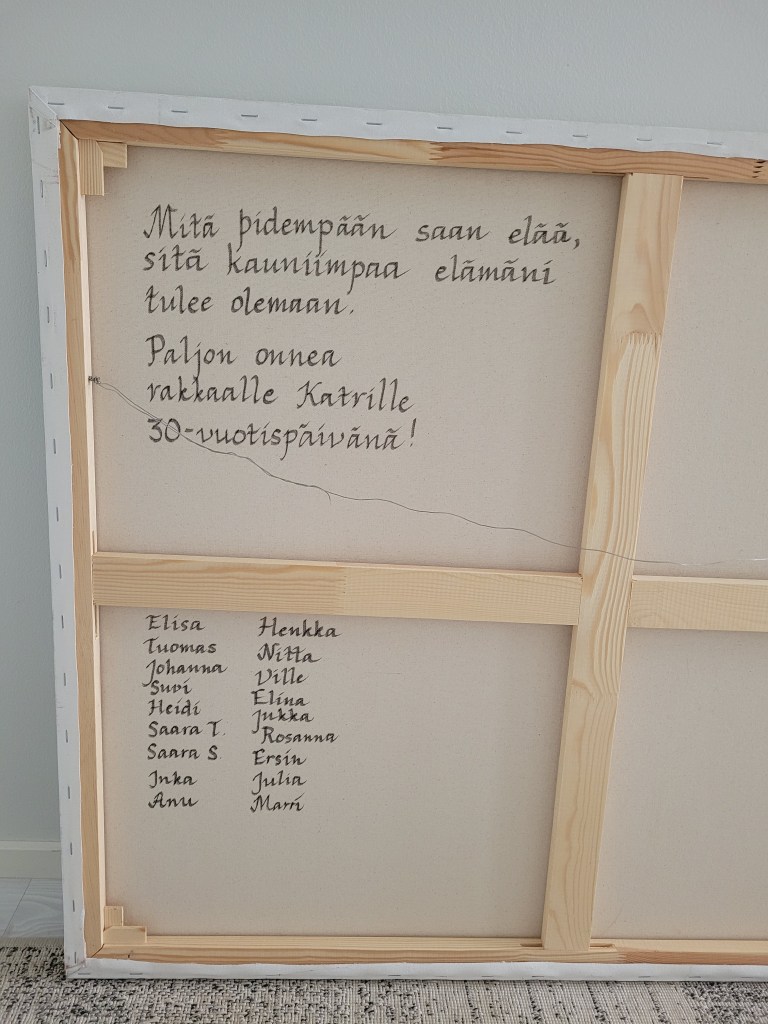 Mitä pidempään saan elää,
sitä kauniimpaa elämäni
tulee olemaan.
Paljon onnea
rakkaalle Katrille
30-vuotispäivänä!
Elisa
Tuomas
Johanna
Suvi
Heidi
Saara T.
Saara S.
Inka
Anu
Henkka
Nitta
Ville
Elina
Jukka
Rosanna
Ersin
Julia